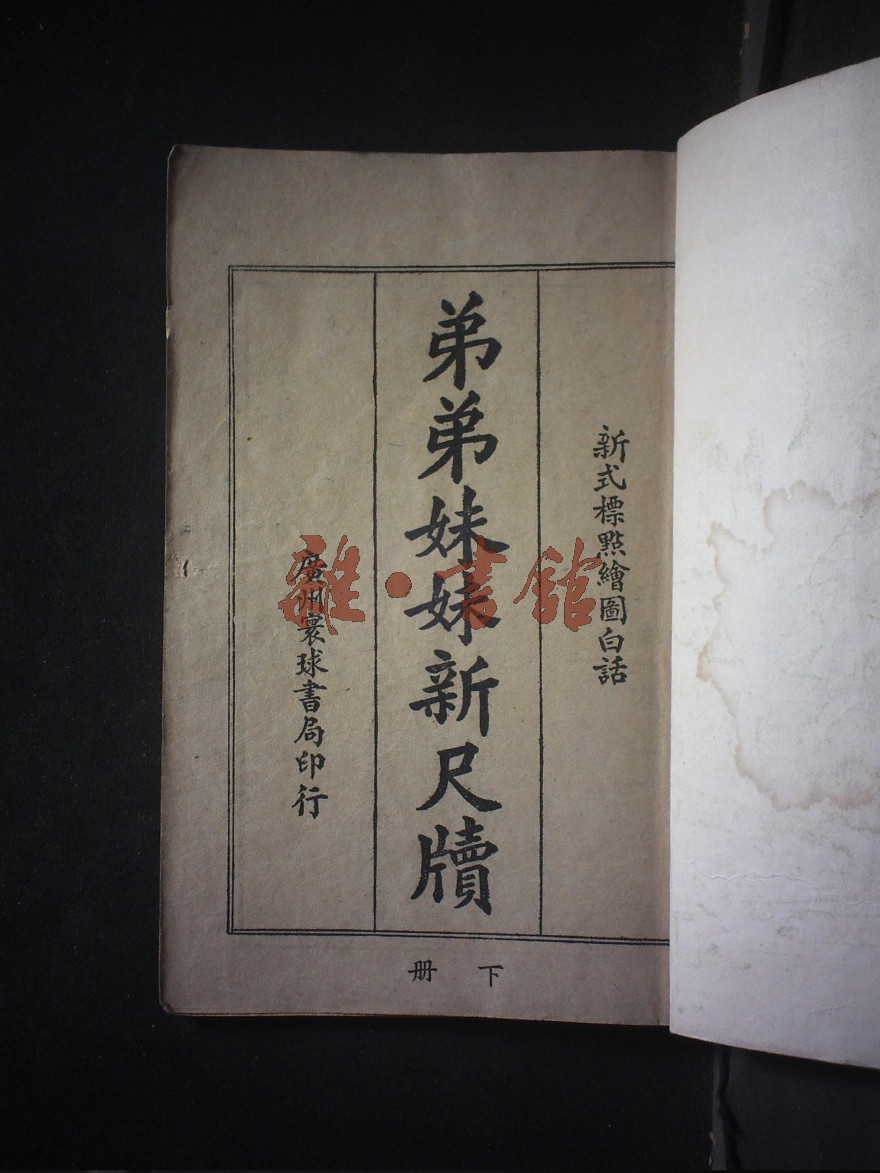 新式標點繪圖白話
弟弟妹妹新尺牘
廣州寰球書局印行
下冊
雜·書館